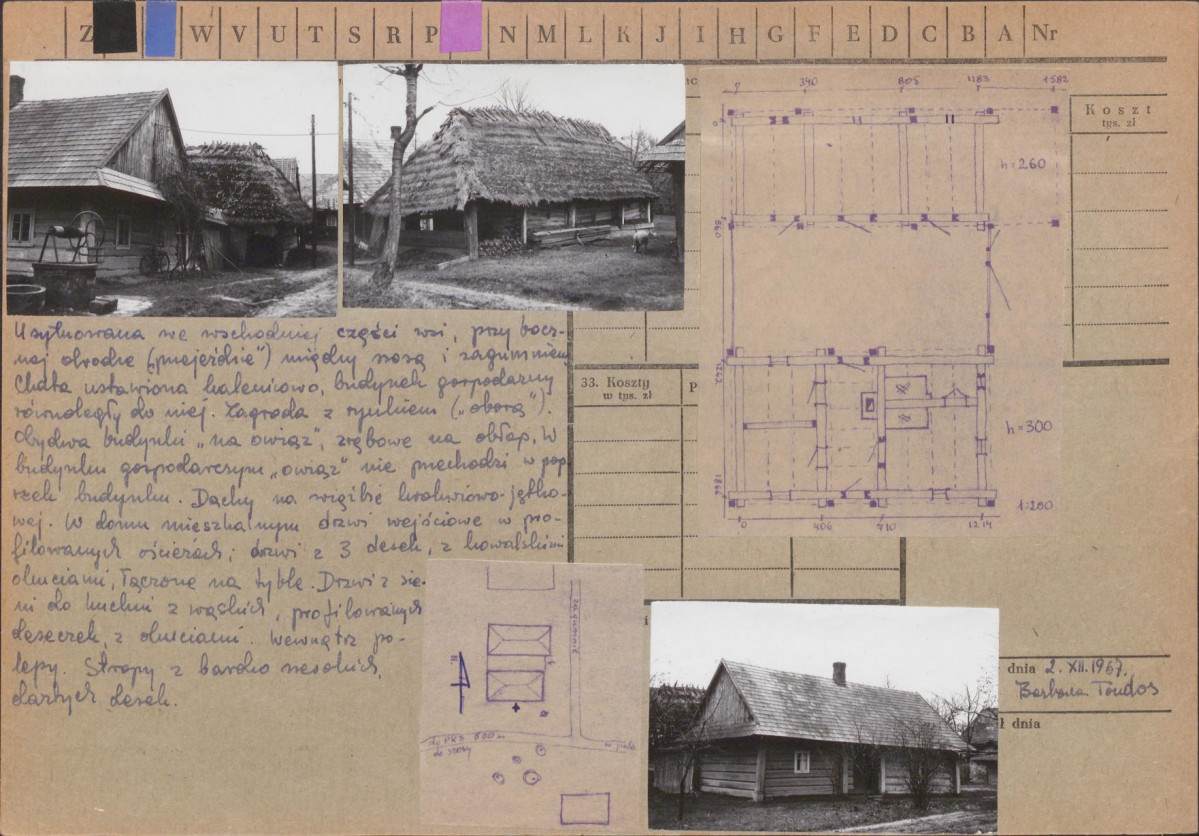 Z W V U T S R P N M L K J I H G F E D C B A Nr
Koszt
tys. zł
0 340 805 1183 1582
h=260
h=300
1:200
0 406 710 1214
Usytuowana we wschodniej części wsi, przy bocz-
nej drodze („przejeździe") między szosą i zagumniem
Chata ustawiona kalenicowo, budynek gospodarczy
równoległy do niej. Zagroda z rynkiem („oborą").
Obydwa budynki „na owiąz", zrębowe na obłap, w
budynku gospodarczym „owiąz" nie przechodzi w pop
rzek budynku. Dachy na więźbie krokwiowo-jętko-
wej. W domu mieszkalnym drzwi wejściowe w pro-
filowanych ościeżach; drzwi z 3 desek, z kowalskimi
okuciami, łączone na tyble. Drzwi z sie-
ni do kuchni z wąskich, profilowanych
deseczek, z okuciami. Wewnątrz po-
lepy. Stropy z bardzo szerokich,
dartych desek.
33. Koszty
w tys. zł
P
N
zagumnie
do PKS 600 m
do szosy
w pole
dnia 2. XII. 1967.
Barbara Tondos
ł dnia